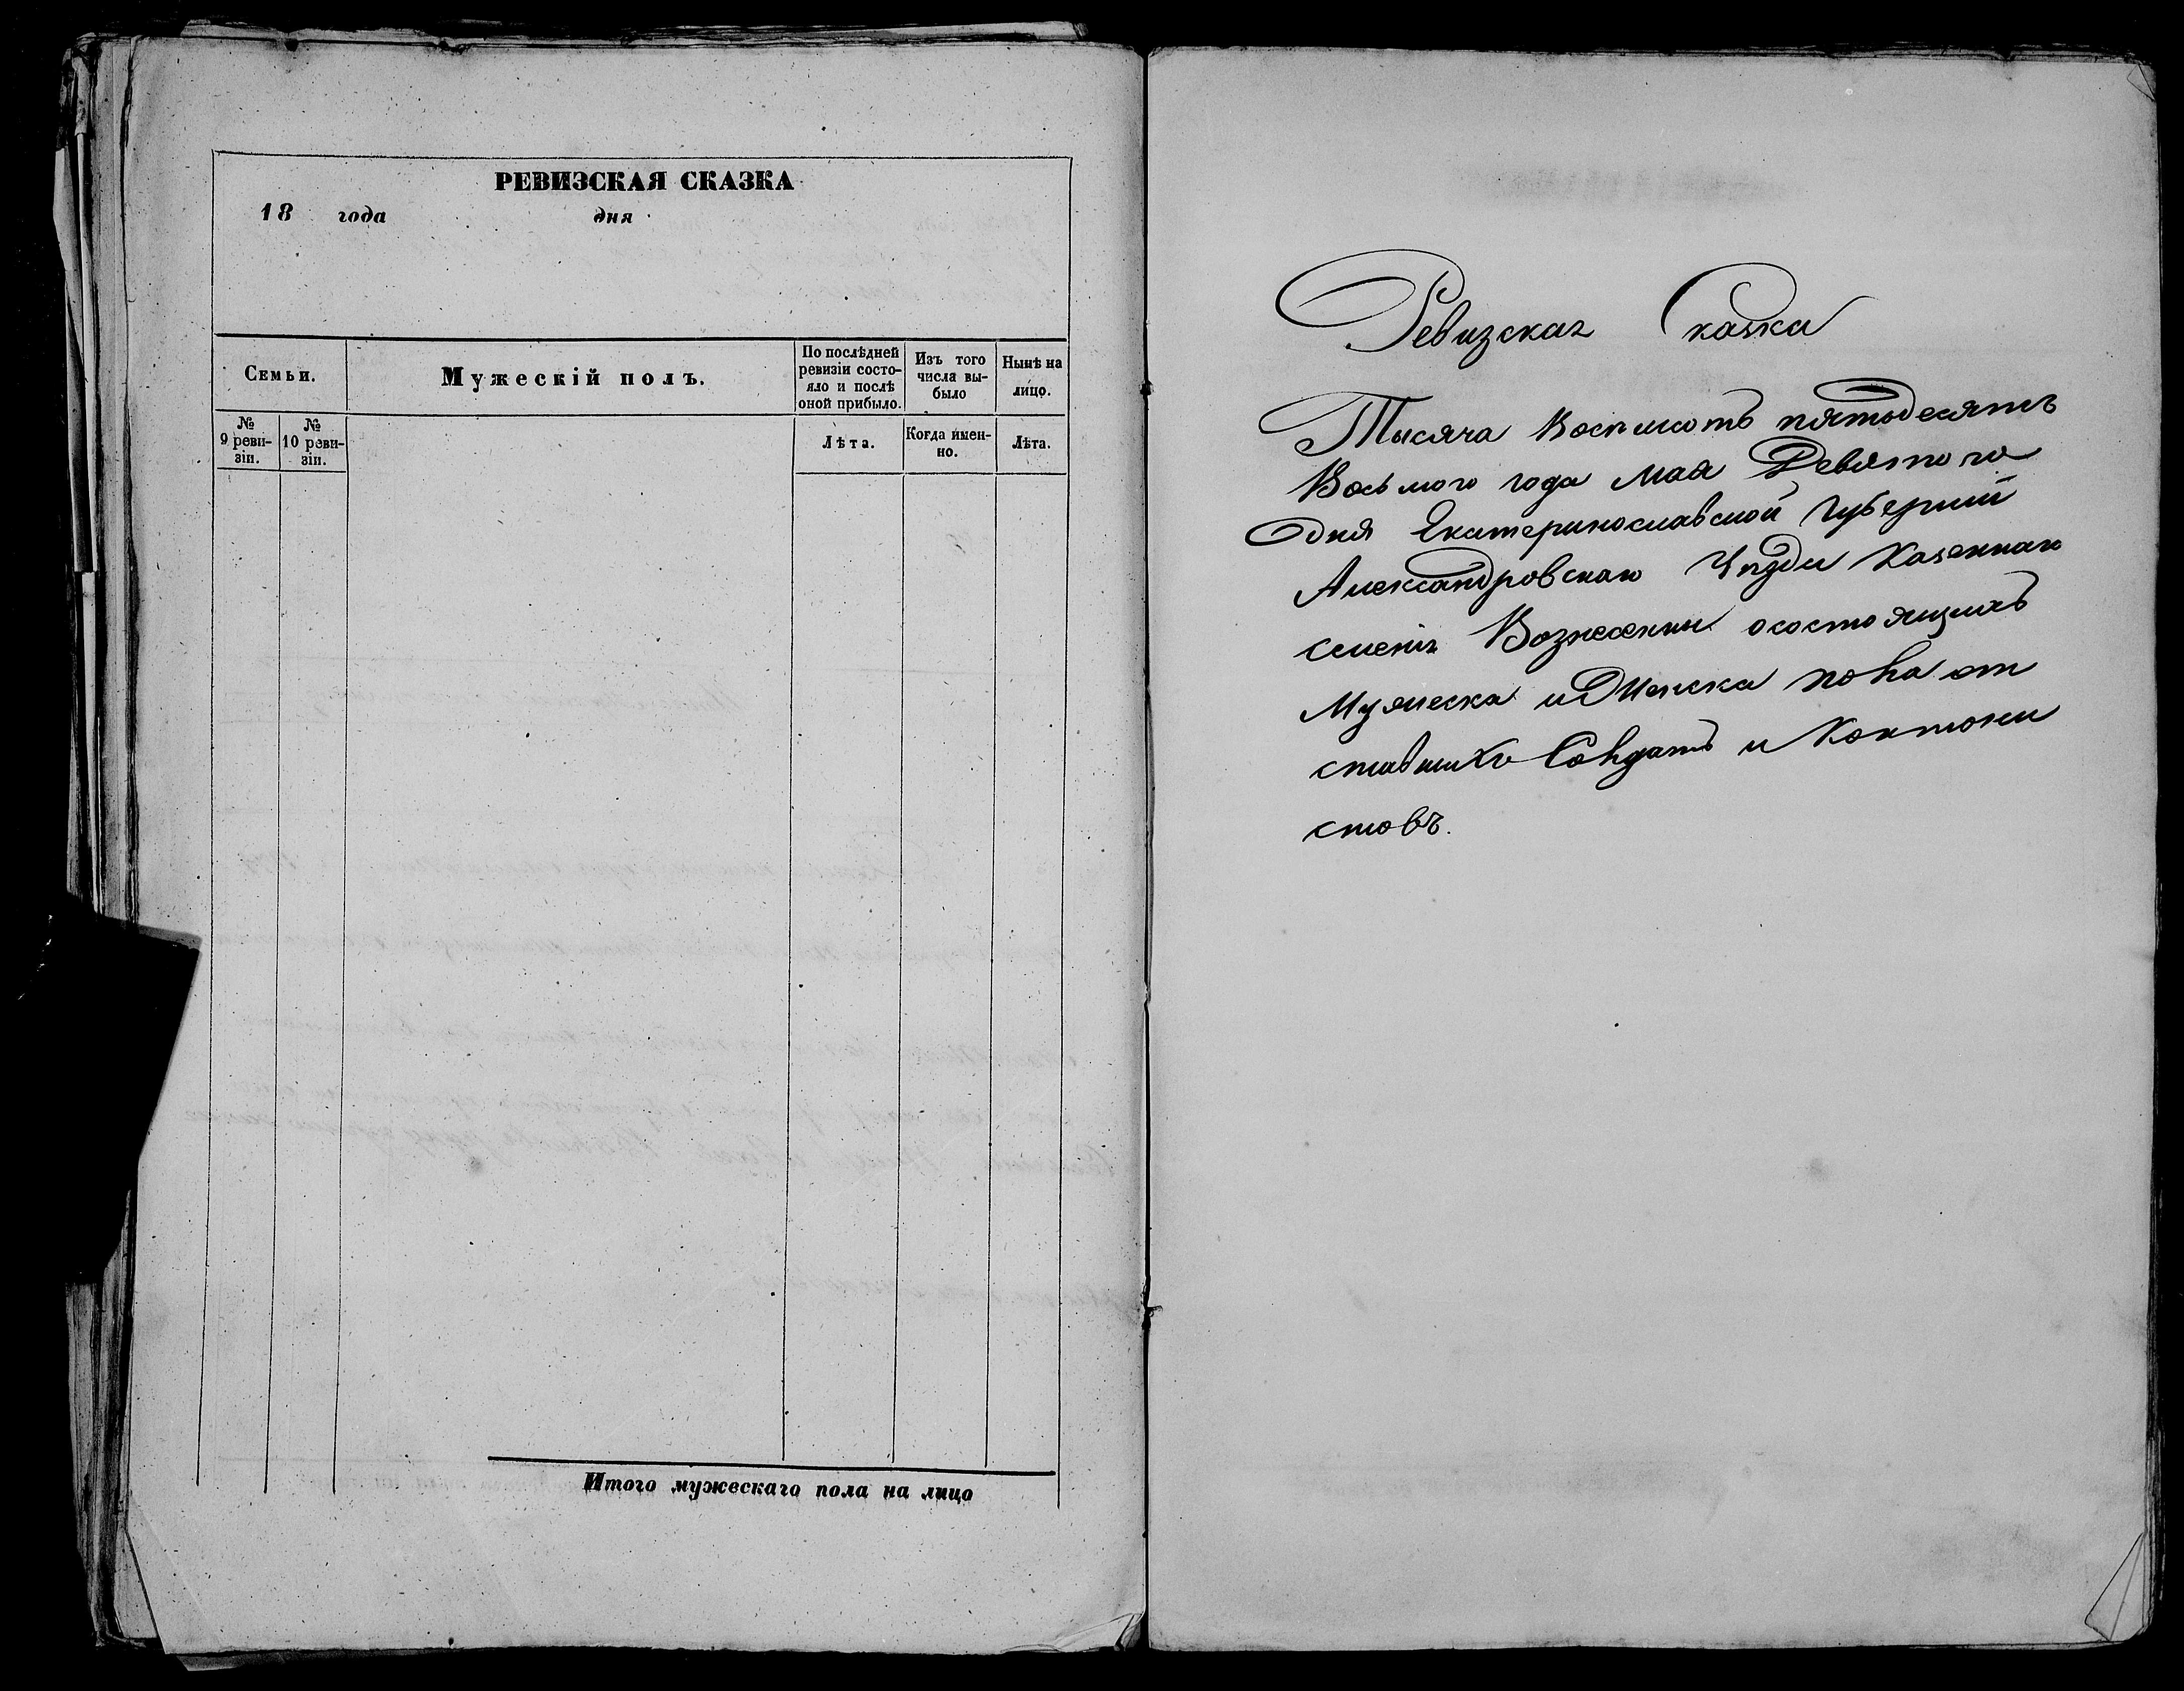 РЕВИЗСКАЯ СКАЗКА
18 года дня
Семьи.
Мужескій полъ.
По послѣдней
ревизіи состо-
яло и послѣ
оной прибыло.
Изъ того
числа вы-
было
Нынѣ на
лицо.
№
9 реви-
зіи.
№
10 реви-
зіи.
Лѣта.
Когда имен-
но.
Лѣта.
Итого мужескаго пола на лицо
Ревизская Сказка
Тысяча Восемсотъ пятодесятъ
Восьмого года мая Девятого
Дня Екатеринославской Губерний
Александровскаго Казеннаго
Вознесенки осостоящихъ
Мужеска и Женска пола от
ставныхъ Солдатъ и Контони
стовъ.